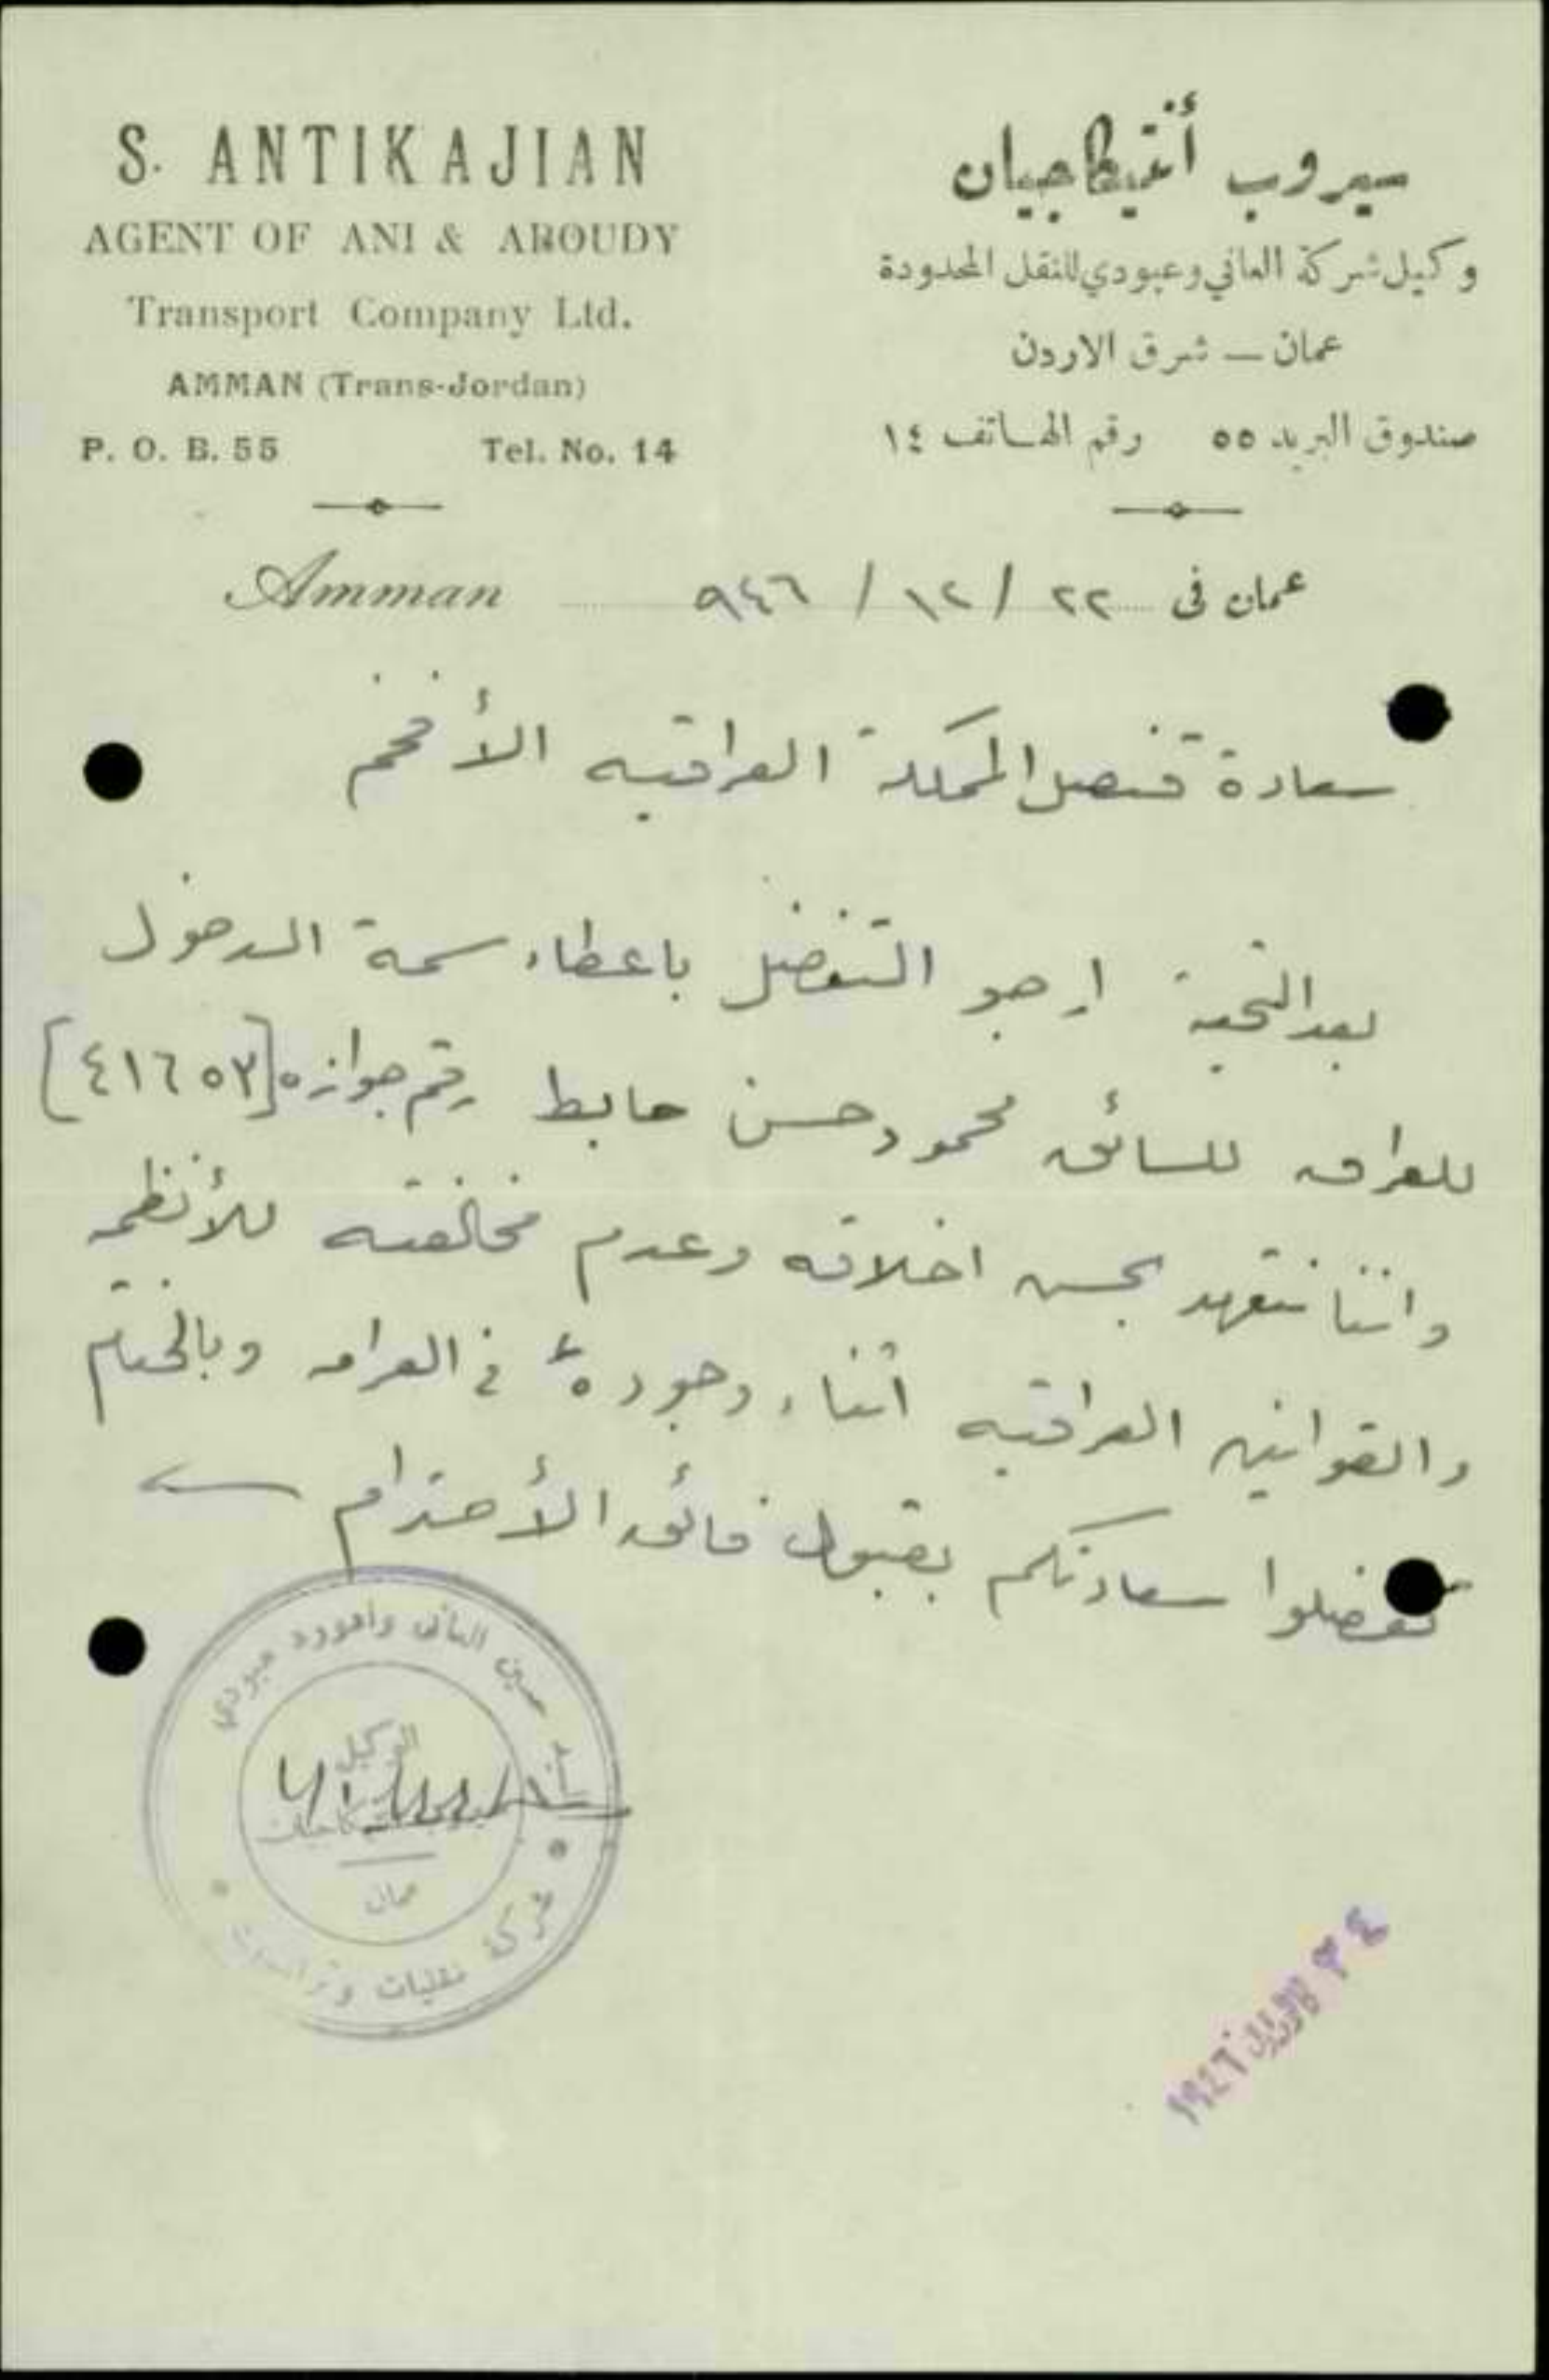 S. ANTIKAJIAN
AGENT OF ANI & ABOUDY
Transport Company Ltd.
AMMAN (Trans-Jordan)
P. O. B. 55 Tel. No. 14
سيروب أنتيكاجيان
وكيل شركة العاني وعبودي للنقل المحدودة
عمان — شرق الاردن
صندوق البريد ٥٥ رقم الهاتف ١٤
عمان في ٢٢ / ١٢ / ٩٤٦ Amman
سعادة قنصل المملكة العراقيه الأفخم
بعد التحية ارجو التفضل باعطاء سمة الدخول
للعراق للسائق محمود حسن حابط رقم جوازه [٤١٦٥٣]
واننا نتعهد بحسن اخلاقه وعدم مخالفته للأنظمه
والقوانين العراقيه اثناء وجوده في العراق وبالختام
تفضلوا سعادتكم بقبول فائق الأحترام
حسين العاني وادوارد عبودي
الوكيل
عمان
شركة نقليات
١٩٤٦